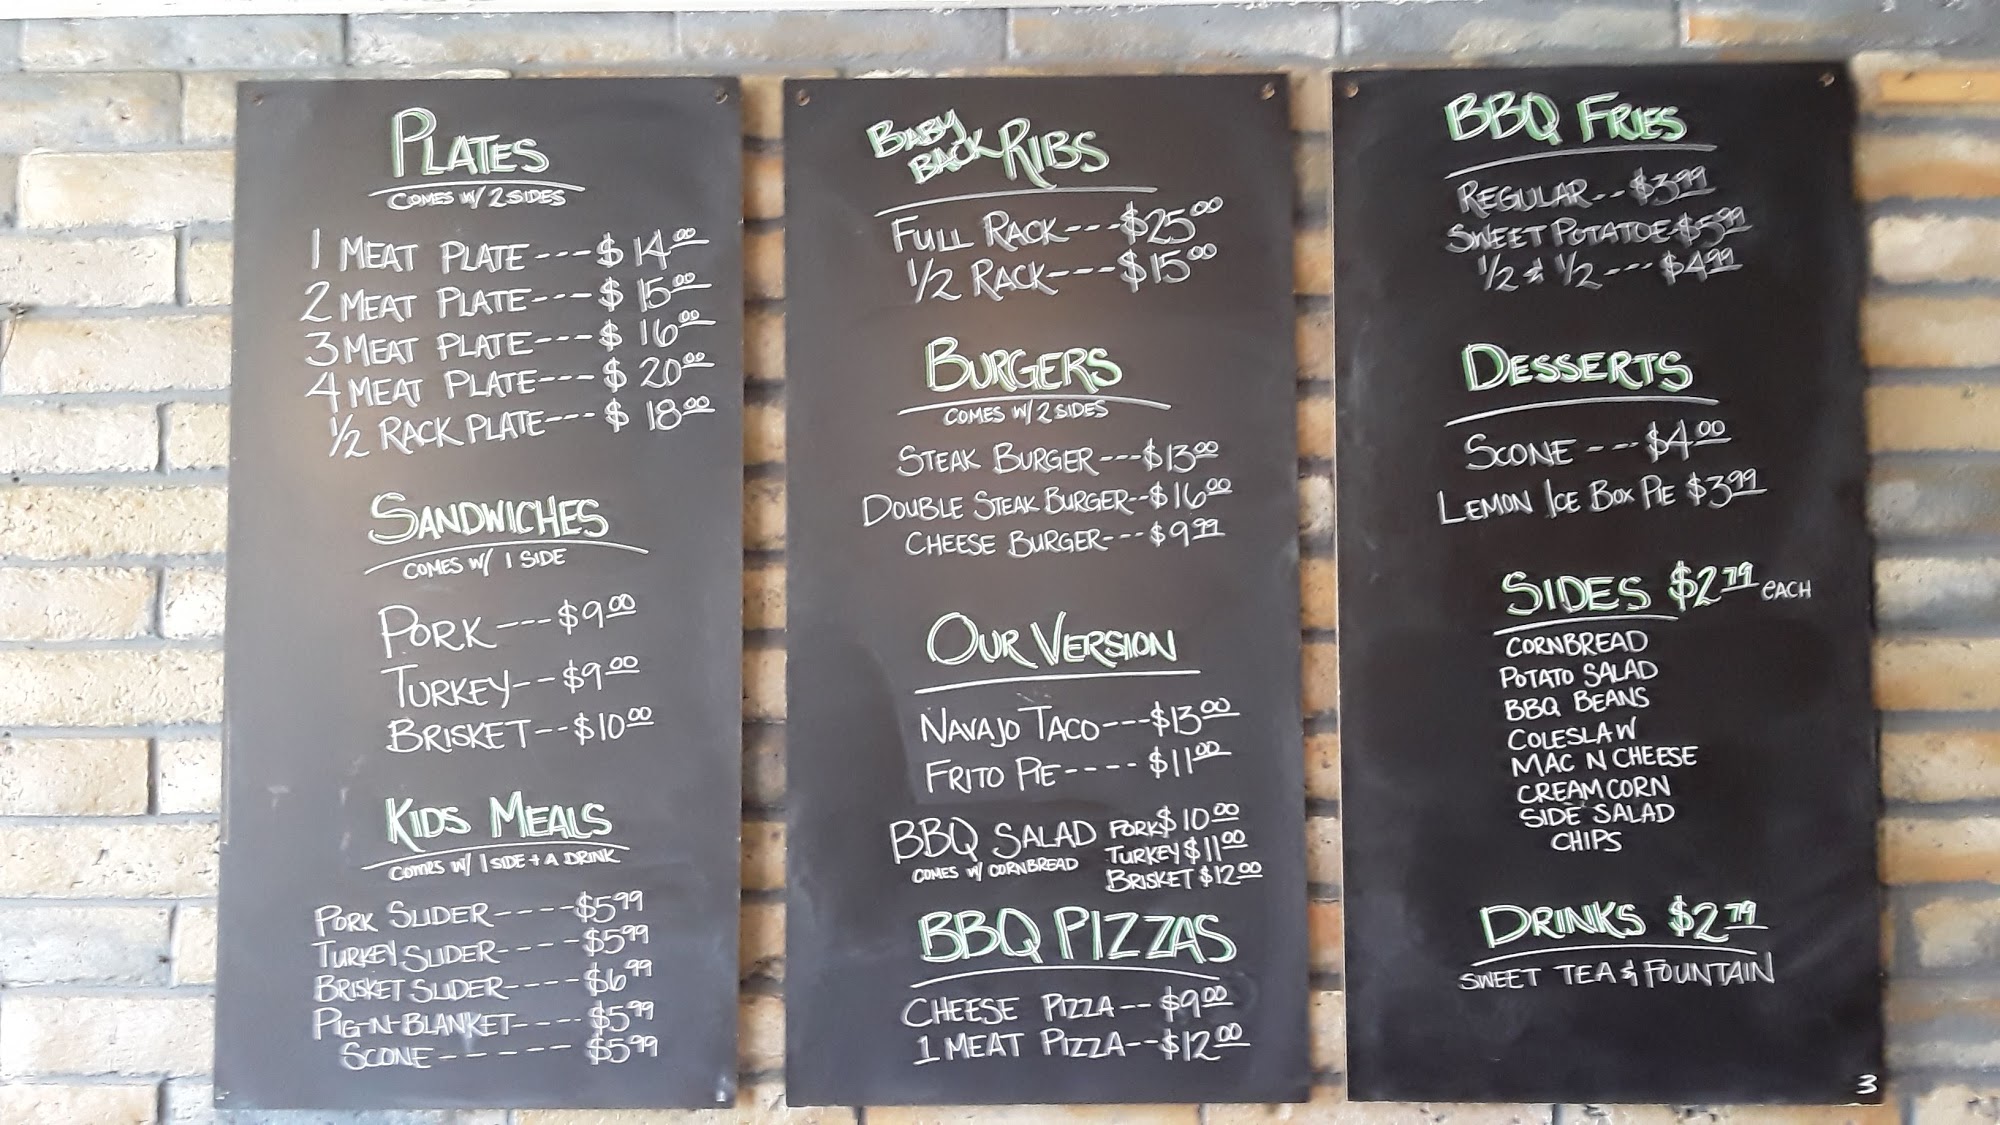 PLATES
COMES W/ 2 SIDES
1 MEAT PLATE --- $14.00
2 MEAT PLATE --- $15.00
3 MEAT PLATE --- $16.00
4 MEAT PLATE --- $20.00
1/2 RACK PLATE --- $18.00
SANDWICHES
COMES W/ 1 SIDE
PORK --- $9.00
TURKEY -- $9.00
BRISKET -- $10.00
KIDS MEALS
COMES W/ 1 SIDE + A DRINK
PORK SLIDER ---- $5.99
TURKEY SLIDER ---- $5.99
BRISKET SLIDER ---- $6.99
PIG-N-BLANKET ---- $5.99
SCONE ------ $5.99
BABY BACK RIBS
FULL RACK --- $25.00
1/2 RACK --- $15.00
BURGERS
COMES W/ 2 SIDES
STEAK BURGER --- $13.00
DOUBLE STEAK BURGER -- $16.00
CHEESE BURGER --- $9.99
OUR VERSION
NAVAJO TACO --- $13.00
FRITO PIE ---- $11.00
BBQ SALAD PORK $10.00
COMES W/ CORNBREAD TURKEY $11.00
BRISKET $12.00
BBQ PIZZAS
CHEESE PIZZA -- $9.00
1 MEAT PIZZA -- $12.00
BBQ FRIES
REGULAR -- $3.99
SWEET POTATOE - $5.99
1/2 & 1/2 --- $4.99
DESSERTS
SCONE --- $4.00
LEMON ICE BOX PIE $3.99
SIDES $2.79 EACH
CORNBREAD
POTATO SALAD
BBQ BEANS
COLESLAW
MAC N CHEESE
CREAM CORN
SIDE SALAD
CHIPS
DRINKS $2.79
SWEET TEA & FOUNTAIN
3